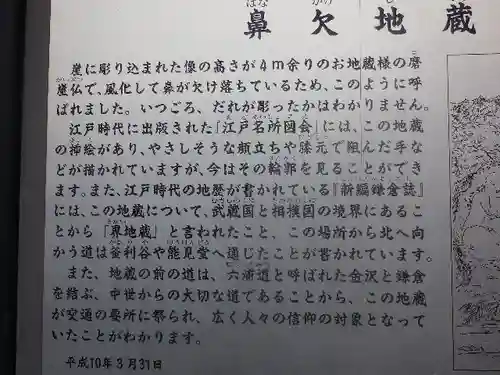 鼻欠地蔵
崖に彫り込まれた像の高さが4m余りのお地蔵様の磨
崖仏で、風化して鼻が欠け落ちているため、このように呼
ばれました。いつごろ、だれが彫ったかはわかりません。
江戸時代に出版された「江戸名所図会」には、この地蔵
の挿絵があり、やさしそうな顔立ちや膝元で組んだ手な
どが描かれていますが、今はその輪郭を見ることができ
ます。また、江戸時代の地歴が書かれている『新編鎌倉誌』
には、この地蔵について、武蔵国と相模国の境界にあるこ
とから「界地蔵」と言われたこと、この場所から北へ向
かう道は釜利谷や能見堂へ通じたことが書かれています。
また、地蔵の前の道は、六浦道と呼ばれた金沢と鎌倉
を結ぶ、中世からの大切な道であることから、この地蔵
が交通の要所に祭られ、広く人々の信仰の対象となって
いたことがわかります。
平成10年3月31日